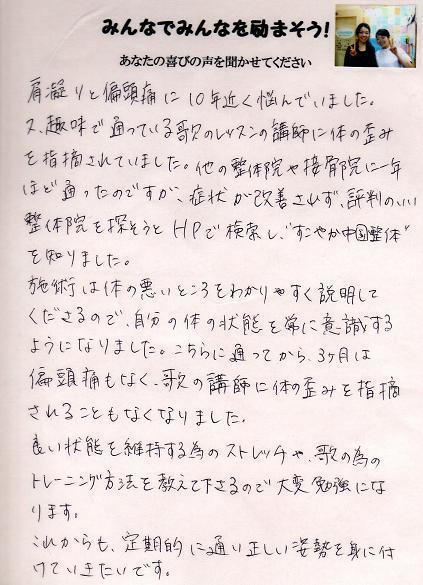 みんなでみんなを励まそう!
あなたの喜びの声を聞かせてください
肩凝りと偏頭痛に10年近く悩んでいました。
又、趣味で通っている歌のレッスンの講師に体の歪み
を指摘されていました。他の整体院や接骨院に一年
ほど通ったのですが、症状が改善されず、評判のいい
整体院を探そうとHPで検索し、"すこやか中国整体"
を知りました。
施術は体の悪いところをわかりやすく説明して
くださるので、自分の体の状態を常に意識する
ようになりました。こちらに通ってから、3ヶ月は
偏頭痛もなく、歌の講師に体の歪みを指摘
されることもなくなりました。
良い状態を維持する為のストレッチや、歌の為の
トレーニング方法を教えて下さるので大変勉強にな
ります。
これからも、定期的に通い正しい姿勢を身に付
けていきたいです。